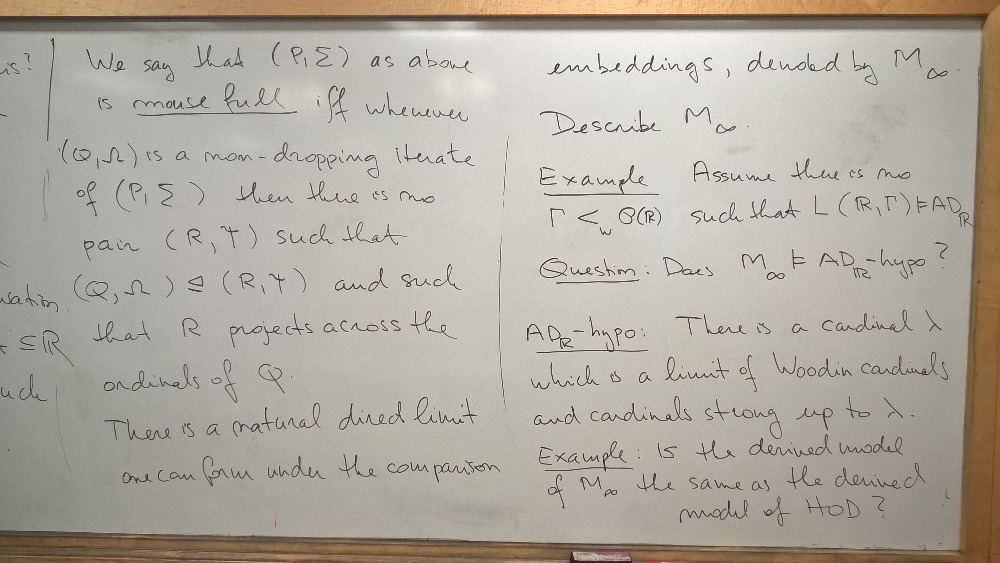 is?
We say that (P, Σ) as above
is mouse full iff whenever
(Q, Ω) is a non-dropping iterate
of (P, Σ) then there is no
pair (R, Ψ) such that
(Q, Ω) ⊴ (R, Ψ) and such
that R projects across the
ordinals of Q.
There is a natural direct limit
one can form under the comparison
⊆ ℝ
embeddings, denoted by M∞.
Describe M∞.
Example Assume there is no
Γ <_w ℘(ℝ) such that L(ℝ, Γ) ⊨ AD_ℝ
Question: Does M∞ ⊨ AD_ℝ-hypo?
AD_ℝ-hypo: There is a cardinal λ
which is a limit of Woodin cardinals
and cardinals strong up to λ.
Example: Is the derived model
of M∞ the same as the derived
model of HOD?